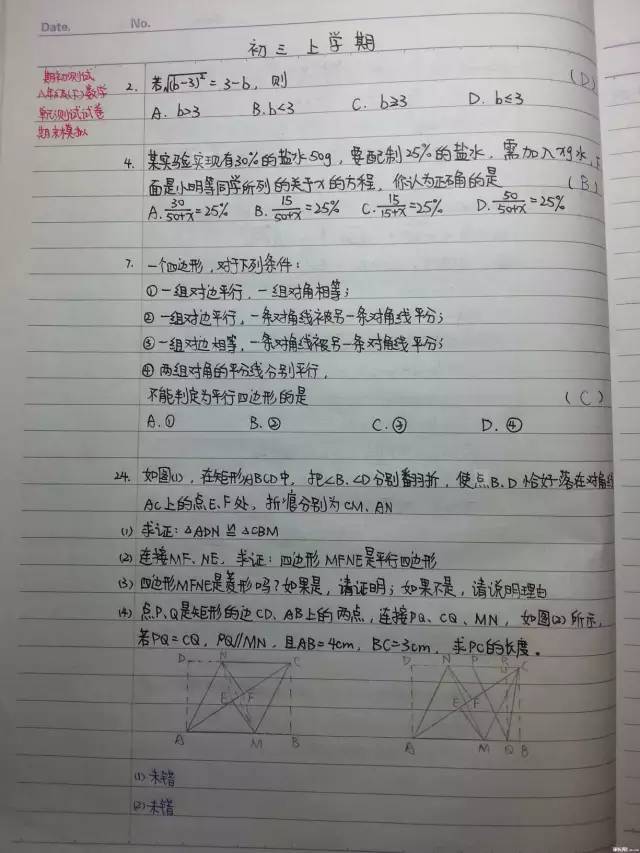 Date.
No.
初三上学期
期初测试
八年级(下)数学
单元测试试卷
期末模拟
2. 若√(b-3)² = 3-b, 则 (D)
A. b>3 B. b<3 C. b≥3 D. b≤3
4. 某实验室现有30%的盐水50g, 要配制25%的盐水, 需加入xg水, 下
面是小明等同学所列的关于x的方程, 你认为正确的是 (B)
A. 30/50+x=25% B. 15/50+x=25% C. 15/15+x=25% D. 50/50+x=25%
7. 一个四边形, 对于下列条件:
①一组对边平行, 一组对角相等;
②一组对边平行, 一条对角线被另一条对角线平分;
③一组对边相等, 一条对角线被另一条对角线平分;
④两组对角的平分线分别平行,
不能判定为平行四边形的是 (C)
A. ① B. ② C. ③ D. ④
24. 如图(1), 在矩形ABCD中, 把∠B、∠D分别翻折, 使点B、D恰好落在对角线
AC上的点E、F处, 折痕分别为CM、AN
(1) 求证: △ADN≌△CBM
(2) 连接MF、NE, 求证: 四边形MFNE是平行四边形
(3) 四边形MFNE是菱形吗? 如果是, 请证明; 如果不是, 请说明理由
(4) 点P、Q是矩形的边CD、AB上的两点, 连接PQ、CQ、MN, 如图(2)所示,
若PQ=CQ, PQ//MN, 且AB=4cm, BC=3cm, 求PC的长度。
D N C
E F
A M B
D N P R C
E F
A M Q B
(1) 未错
(2) 未错